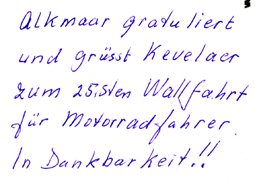 Alkmaar gratuliert
und grüsst Kevelaer
zum 25.sten Wallfahrt
für Motorradfahrer.
In Dankbarkeit!!